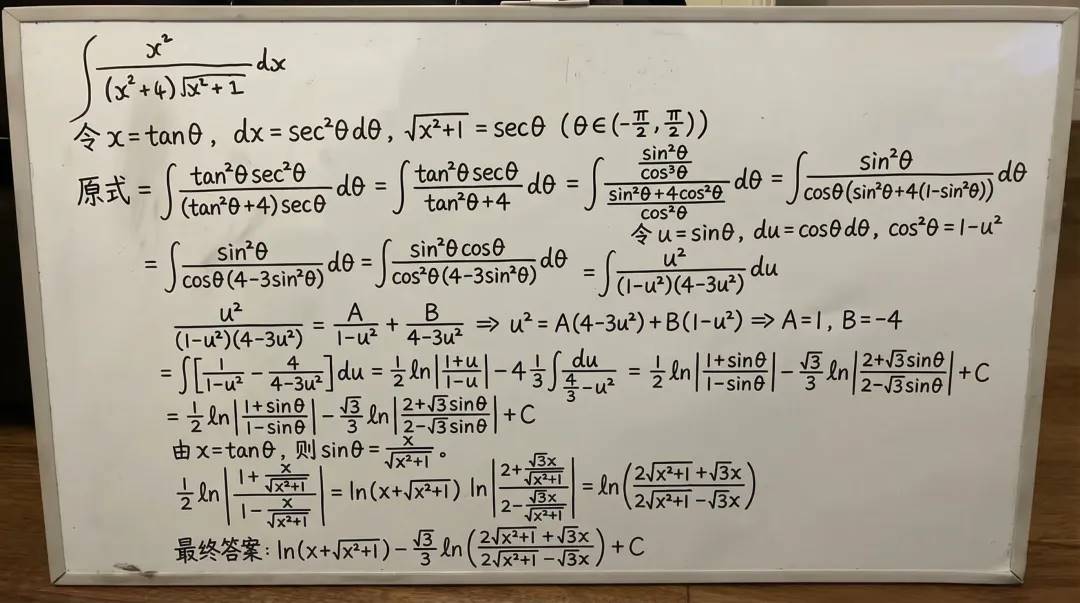 ∫ x²/((x²+4)√(x²+1)) dx
令 x = tanθ, dx = sec²θ dθ, √(x²+1) = secθ (θ∈(-π/2, π/2))
原式 = ∫ tan²θ sec²θ/((tan²θ+4) secθ) dθ = ∫ tan²θ secθ/(tan²θ+4) dθ = ∫ (sin²θ/cos³θ)/((sin²θ+4cos²θ)/cos²θ) dθ = ∫ sin²θ/(cosθ(sin²θ+4(1-sin²θ))) dθ
令 u = sinθ, du = cosθ dθ, cos²θ = 1-u²
= ∫ sin²θ/(cosθ(4-3sin²θ)) dθ = ∫ sin²θ cosθ/(cos²θ(4-3sin²θ)) dθ = ∫ u²/((1-u²)(4-3u²)) du
u²/((1-u²)(4-3u²)) = A/(1-u²) + B/(4-3u²) ⇒ u² = A(4-3u²)+B(1-u²) ⇒ A=1, B=-4
= ∫[1/(1-u²) - 4/(4-3u²)] du = 1/2 ln|(1+u)/(1-u)| - 4 1/3 ∫ du/(4/3-u²) = 1/2 ln|(1+sinθ)/(1-sinθ)| - √3/3 ln|(2+√3sinθ)/(2-√3sinθ)| + C
= 1/2 ln|(1+sinθ)/(1-sinθ)| - √3/3 ln|(2+√3sinθ)/(2-√3sinθ)| + C
由 x = tanθ, 则 sinθ = x/√(x²+1)。
1/2 ln|(1+x/√(x²+1))/(1-x/√(x²+1))| = ln(x+√(x²+1)) ln|(2+√3x/√(x²+1))/(2-√3x/√(x²+1))| = ln((2√(x²+1)+√3x)/(2√(x²+1)-√3x))
最终答案: ln(x+√(x²+1)) - √3/3 ln((2√(x²+1)+√3x)/(2√(x²+1)-√3x)) + C